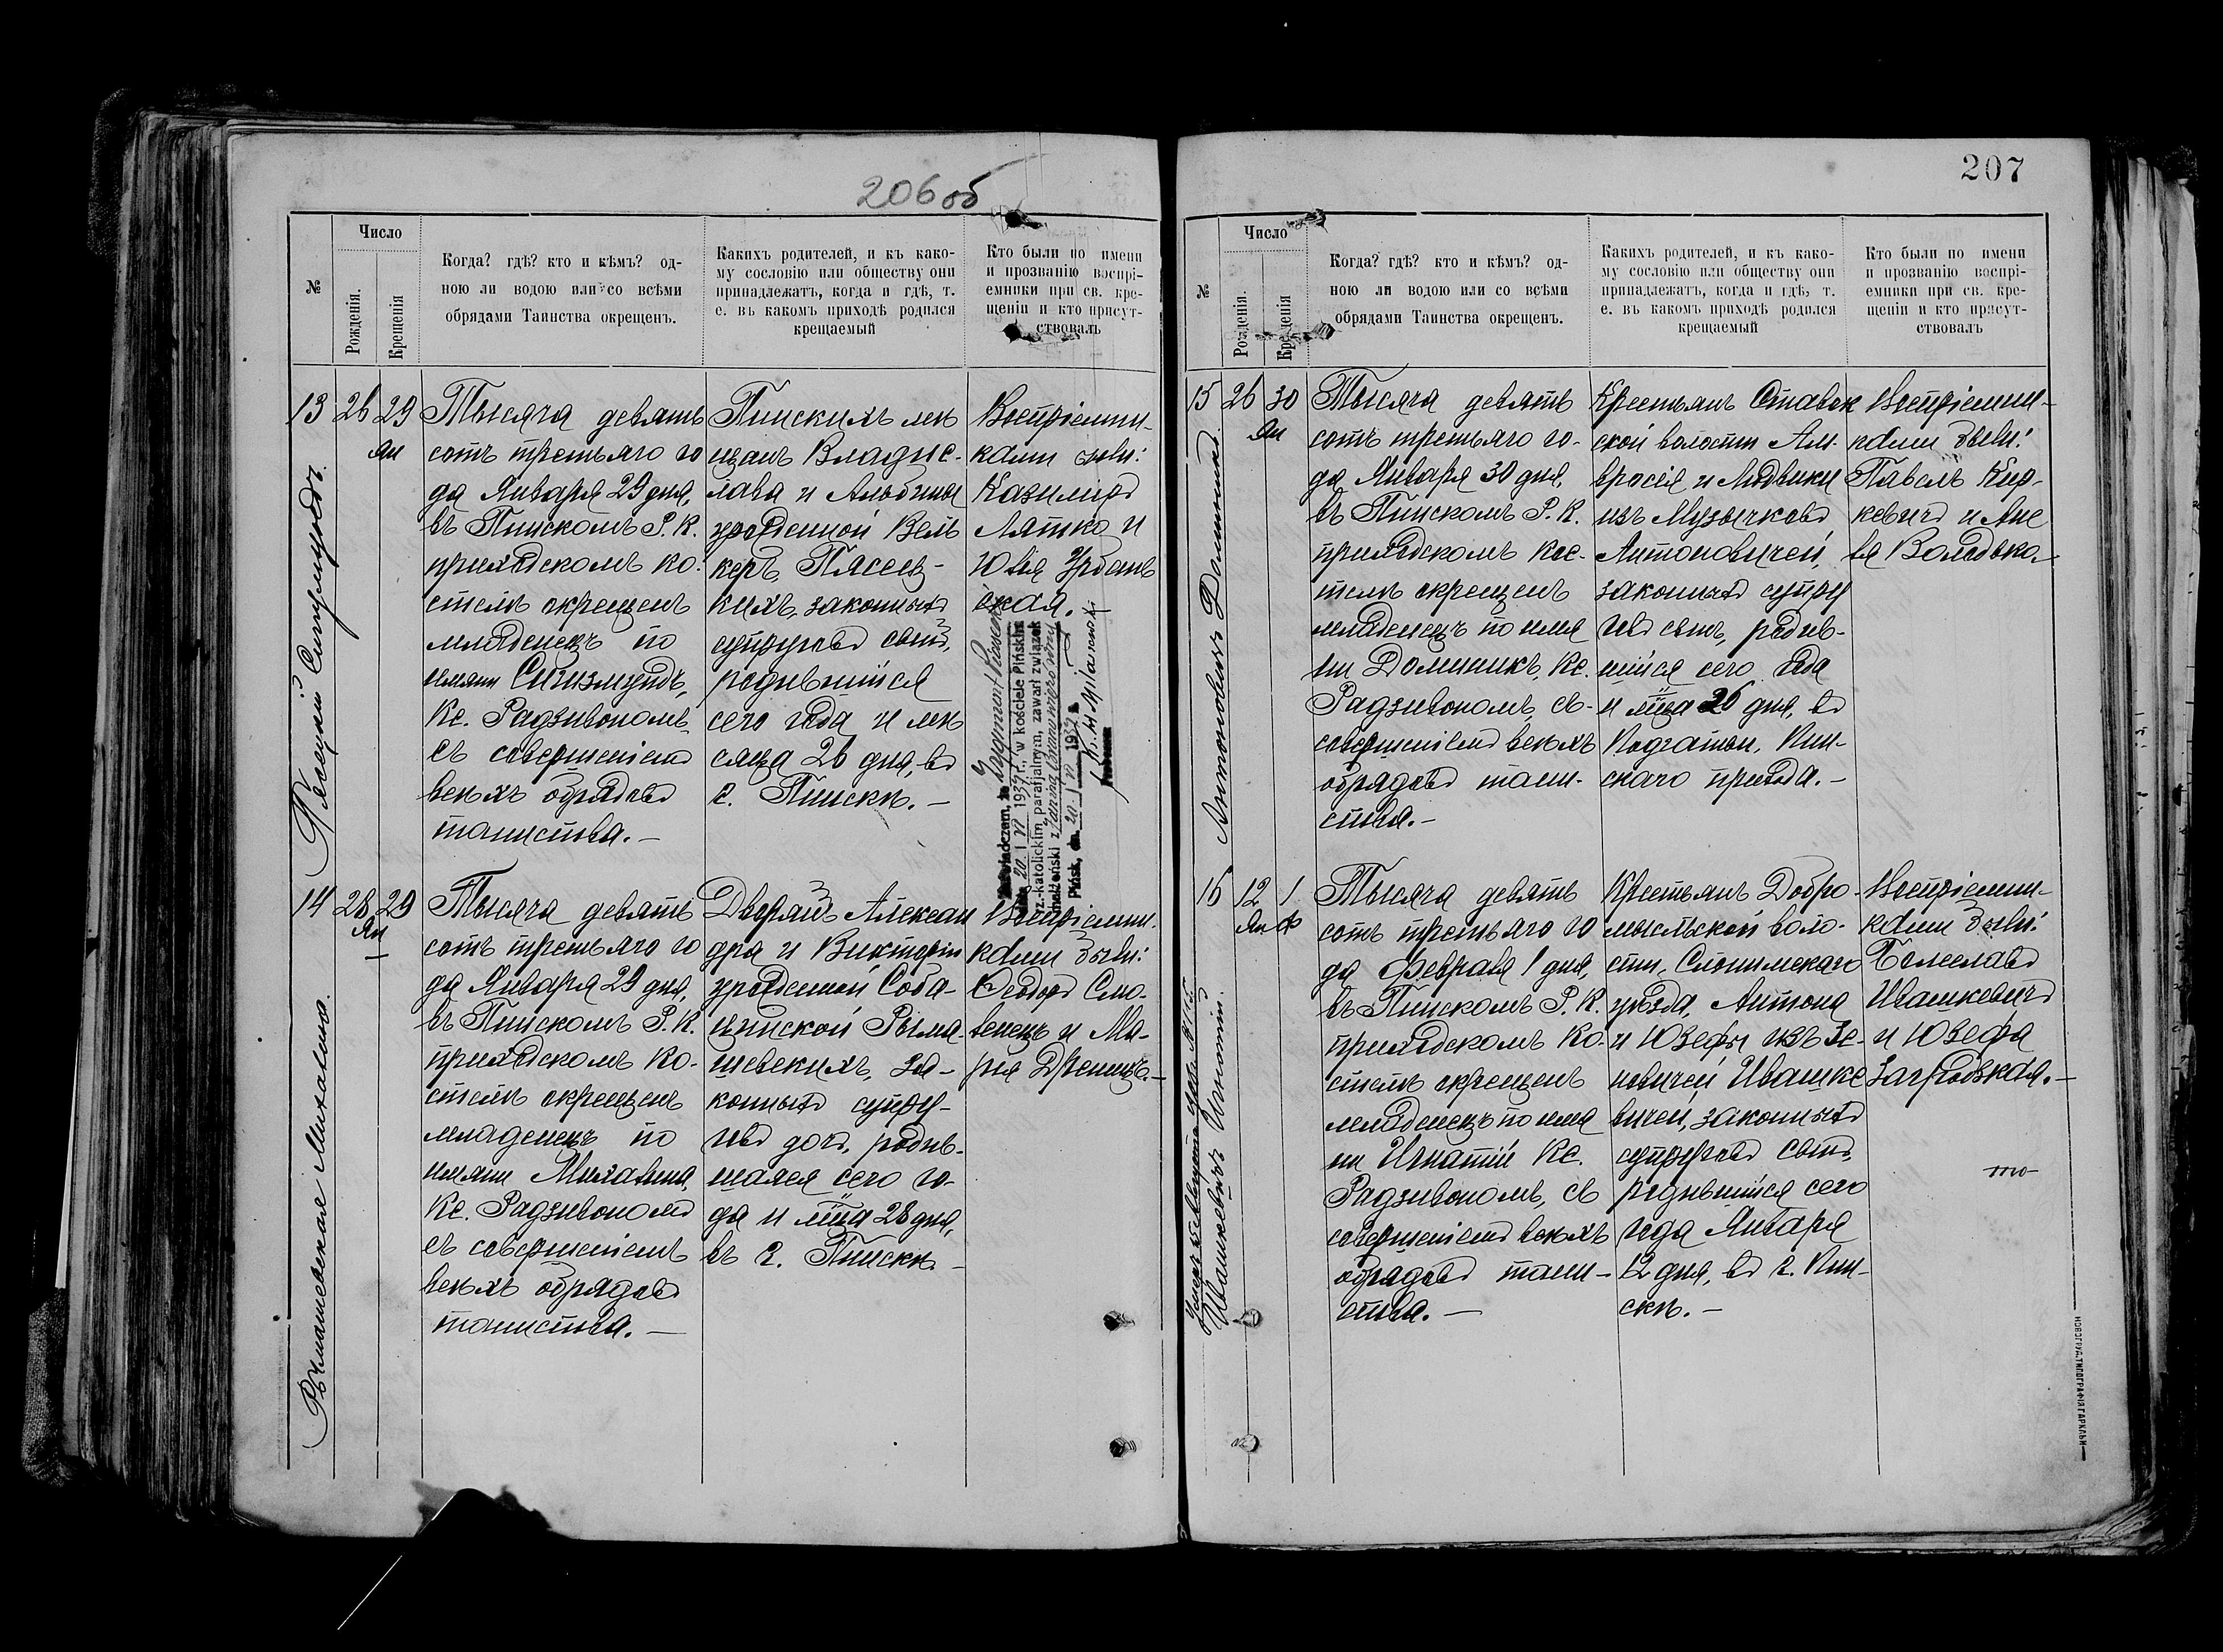 206 об
№
Число
Рожденія.
Крещенія
Когда? гдѣ? кто и кѣмъ? од-
ною ли водою или со всѣми
обрядами Таинства окрещенъ.
Каихъ родителей, и къ како-
му сословію или обществу они
принадлежатъ, когда и гдѣ, т.
е. въ какомъ приходѣ родился
крещаемый
Кто были по имени
и прозванію воспрі-
емники при св. кре-
щеніи и кто присут-
ствовалъ
13
26 29
Ян
Плясецкій Сигизмундъ.
Тысяча девять
сотъ третьяго го
да Января 29 дня,
въ Пинскомъ Р. К.
приходскомъ ко-
стелѣ окрещенъ
младенецъ по
имени Сигизмундъ,
Кс. Радзивономъ,
съ совершеніемъ
всѣхъ обрядовъ
таинства. —
Пинскихъ мѣ
щанъ Владис-
лава и Альбины
урожденной Вель
керъ, Плясец-
кихъ, законныхъ
супруговъ сынъ,
родившійся
сего года и мѣ
сяца 26 дня, въ
г. Пинскѣ. —
Воспріемни-
ками были:
Казимиръ
Лятко и
Юлія Урбань
ская.
Zaświadczam, że Zygmunt
dnia 20 I VI 1937 r., w kościele Pińskim
rz.-katolickim, parafjalnym, zawarł związek
małżeński z
Pińsk, dn. 20 I VI 1937 r.
14
28 29
Ян
Рымашевская Михалина.
Тысяча девять
сотъ третьяго го
да Января 29 дня,
въ Пинскомъ Р. К.
приходскомъ ко-
стелѣ окрещенъ
младенецъ по
имени Михалина,
Кс. Радзивономъ
съ совершеніемъ
всѣхъ обрядовъ
таинства. —
Дворянъ Алексан
дра и Викторіи
урожденной Соба-
цинской Рыма-
шевскихъ, за-
конныхъ супру-
говъ дочь, родив-
шаяся сего го-
да и мца 28 дня,
въ г. Пинскѣ. —
Воспріемни-
ками были:
Ѳеодоръ Сло-
венецъ и Ма-
рія Дженицъ. —
207
№
Число
Рожденія.
Крещенія
Когда? гдѣ? кто и кѣмъ? од-
ною ли водою или со всѣми
обрядами Таинства окрещенъ.
Каихъ родителей, и къ како-
му сословію или обществу они
принадлежатъ, когда и гдѣ, т.
е. въ какомъ приходѣ родился
крещаемый
Кто были по имени
и прозванію воспрі-
емники при св. кре-
щеніи и кто присут-
ствовалъ
15
26 30
Ян
Антоновичъ Доминикъ.
Тысяча девять
сотъ третьяго го-
да Января 30 дня,
въ Пинскомъ Р. К.
приходскомъ кос-
телѣ окрещенъ
младенецъ по име
ни Доминикъ, Кс.
Радзивономъ, съ
совершеніемъ всѣхъ
обрядовъ таин-
ства. —
Крестьянъ Ставок
ской волости Ам-
вросія и Людвики
изъ Музычковъ
Антоновичей,
законныхъ супру
говъ сынъ, родив-
шійся сего года
и мца 26 дня, въ
Подгатьи, Пин-
скаго прихода. —
Воспріемни-
ками были:
Павелъ Кир-
кевичъ и Ане
ля Володько. —
16
12 1
Ян Ф
Ивашкевичъ Игнатій.
Тысяча девять
сотъ третьяго го
да Февраля 1 дня,
въ Пинскомъ Р. К.
приходскомъ ко-
стелѣ окрещенъ
младенецъ по име
ни Игнатій Кс.
Радзивономъ, съ
совершеніемъ всѣхъ
обрядовъ таин-
ства. —
Крестьянъ Добро-
мысльской воло-
сти, Слонимскаго
уѣзда, Антона
и Юзефы изъ Зе-
новичей Ивашке
вичей, законныхъ
супруговъ сынъ,
родившійся сего
года Января
12 дня, въ г. Пин-
скѣ. —
Воспріемни-
ками были:
Болеславъ
Ивашкевичъ
и Юзефа
Загродзкая. —
НОВОГРУД. ТИПОГРАФІЯ ГАРКАВИ